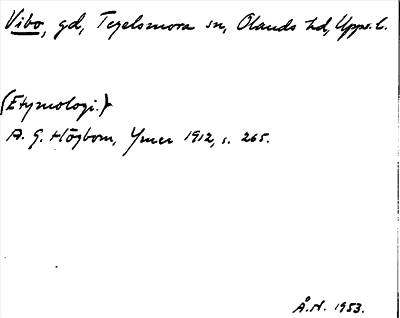 Vibo, gd, Tegelsmora sn, Olands hd, Upps. l.
(Etymologi.)
A. G. Högbom, Ymer 1912, s. 265.
Å.N. 1953.